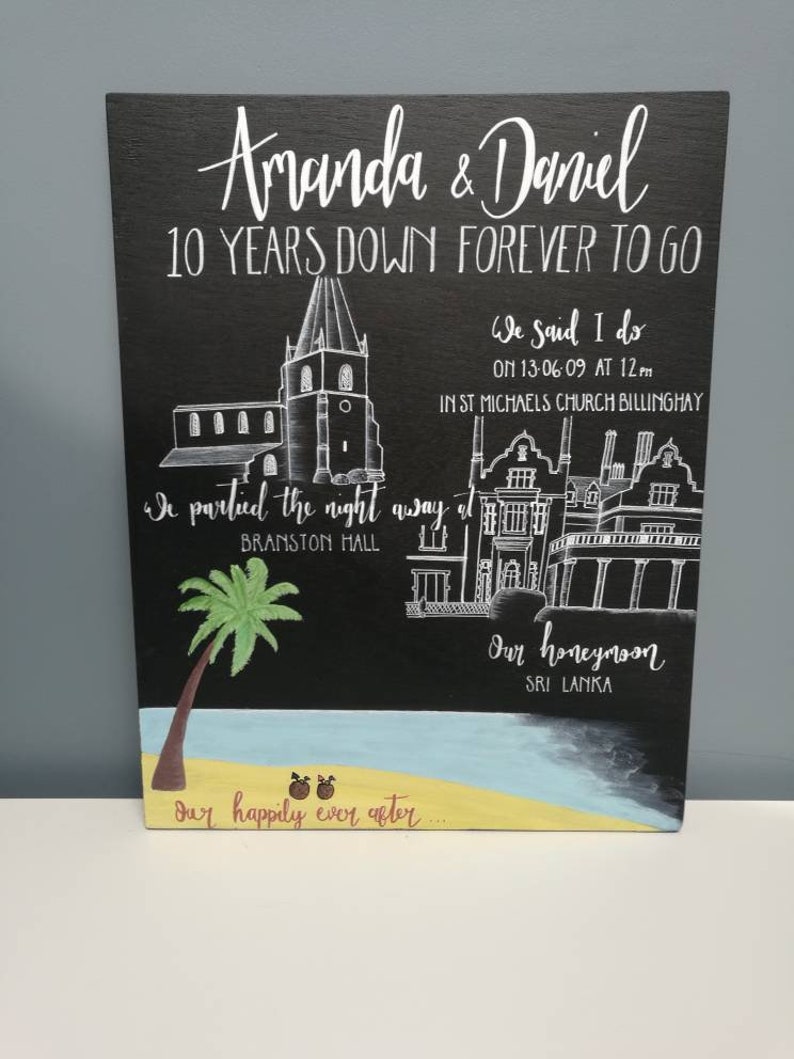 Amanda & Daniel
10 YEARS DOWN FOREVER TO GO
We said I do
ON 13·06·09 AT 12PM
IN ST MICHAELS CHURCH BILLINGHAY
We partied the night away at
BRANSTON HALL
Our honeymoon
SRI LANKA
Our happily ever after...